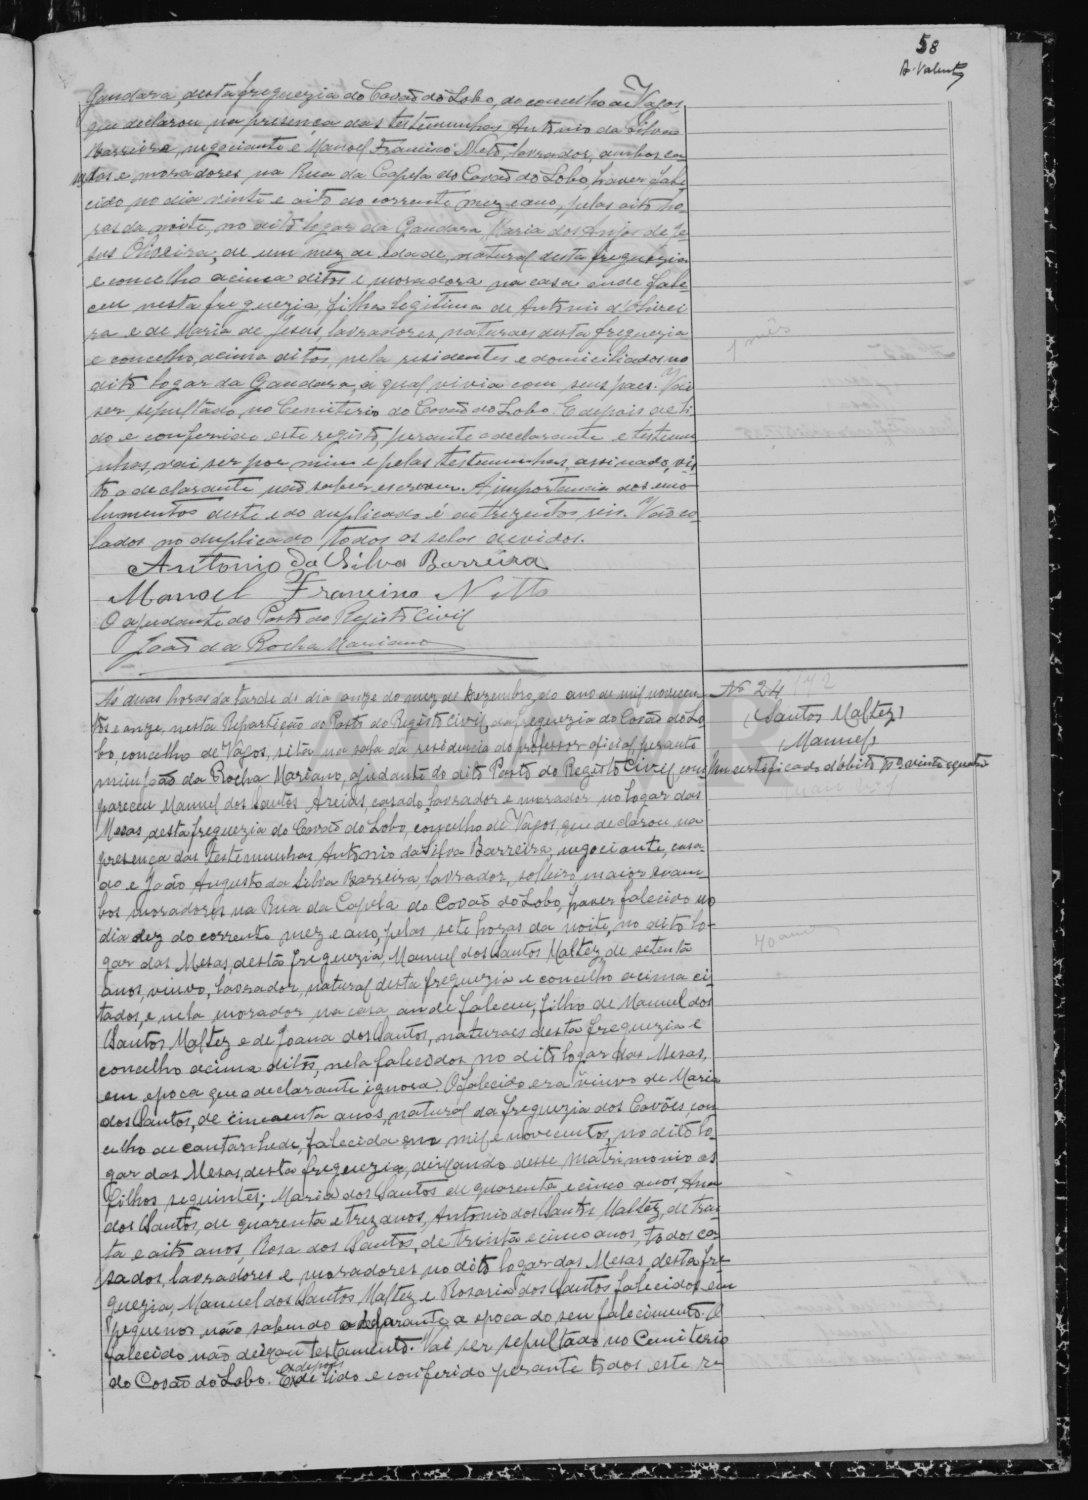 58
A. Valente
Gandara, desta freguezia do Covão do Lobo, do concelho de Vagos,
que declarou na presença das testemunhas Antonio da Silva
Barreira, negociante e Manoel Francino Neto, lavrador, ambos ca-
sados e moradores na Rua da Capela do Covão do Lobo, haver fale-
cido no dia vinte e oito do corrente mez e ano, pelas oito ho-
ras da noite, no dito logar da Gandara, Maria dos Anjos de Je-
sus Oliveira, de um mez de edade, natural desta freguezia
e concelho acima ditos e moradora na casa onde fale-
ceu nesta freguezia, filha legitima de Antonio d'Olivei-
ra e de Maria de Jesus, lavradores, naturaes desta freguezia
e concelho, acima ditos, nela residentes e domiciliados no
dito logar da Gandara, a qual vivia com seus paes. Vai
ser sepultado no Cemiterio do Covão do Lobo. E depois de li-
do e conferido este registo, perante o declarante e testemu-
nhas, vai ser por mim e pelas testemunhas assinado, vis-
to o declarante não saber escrever. A importancia dos emo-
lumentos deste e do duplicado é de trezentos reis. Vão co-
lados no duplicado todos os selos devidos.
Antonio da Silva Barreira
Manoel Francino Netto
O ajudante do Posto do Registo Civil
João da Rocha Mariano
1 mês
Ás duas horas da tarde do dia onze do mez de Dezembro, do ano de mil novecen-
tos e onze, nesta Repartição do Posto do Registo Civil da freguezia do Covão do Lo-
bo, concelho de Vagos, sita na sala da residencia do professor oficial, perante
mim João da Rocha Mariano, ajudante do dito Posto do Registo Civil com-
pareceu Manuel dos Santos Areias, casado, lavrador e morador no logar das
Mesas, desta freguezia do Covão do Lobo, concelho de Vagos, que declarou na
presença das testemunhas Antonio da Silva Barreira, negociante, casa-
do e João Augusto da Silva Barreira, lavrador, solteiro, maior e am-
bos moradores na Rua da Capela do Covão do Lobo, haver falecido no
dia dez do corrente mez e ano, pelas sete horas da noite, no dito lo-
gar das Mesas, desta freguezia, Manuel dos Santos Maltez, de setenta
anos, viuvo, lavrador, natural desta freguezia e concelho acima ci-
tados, e nela morador na casa onde faleceu, filho de Manuel dos
Santos Maltez e de Joana dos Santos, naturaes desta freguezia e
concelho acima ditos, nela falecidos no dito logar das Mesas,
em epoca que o declarante ignora. O falecido era viuvo de Maria
dos Santos, de cincoenta anos, natural da freguezia dos Covões, con-
celho de Cantanhede, falecida em mil e novecentos, no dito lo-
gar das Mesas, desta freguezia, deixando desse matrimonio os
filhos seguintes; Maria dos Santos de quarenta e cinco anos, Ana
dos Santos, de quarenta e trez anos, Antonio dos Santos Maltez, de trin-
ta e oito anos, Rosa dos Santos, de trinta e cinco anos, todos ca-
sados, lavradores e moradores no dito logar das Mesas desta fre-
guezia, Manuel dos Santos Maltez e Rosaria dos Santos falecidos em
pequenos não sabendo o declarante a epoca do seu falecimento. O
falecido não deixou testamento. Vai ser sepultado no Cemiterio
do Covão do Lobo. E depois de lido e conferido perante todos este re-
Nº 24 172
(Santos Maltez)
(Manuel)
Um certificado d'obito nº vinte e quatro
70 anos
ADAVR